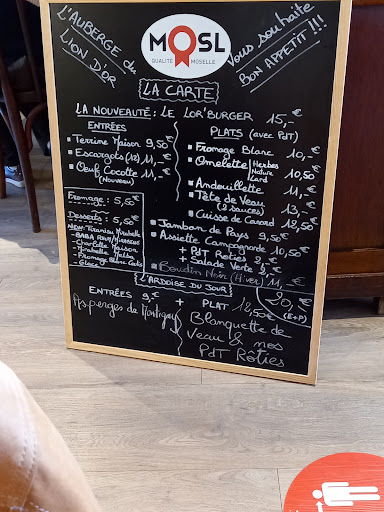 L'AUBERGE du
LION D'OR
MOSL
QUALITÉ MOSELLE
Vous souhaite
BON APPETIT !!!
LA CARTE
LA NOUVEAUTÉ : LE LOR'BURGER 15,-€
ENTRÉES
Terrine Maison 9,50€
Escargots (12) 11,-€
Oeuf Cocotte 11,-€
(Nouveau)
Fromage : 5,50€
Desserts : 5,50€
NEW: Tiramisu Mirabelle
- BABA Rhum
- Charlotte Maison
- Mirabelle Melba
- Fromage Blanc
- Glace
PLATS (avec PdT)
Fromage Blanc 10,-€
Omelette Herbes
Nature
Lard 10,50€
Andouillette 11,-€
Tête de Veau
(2 sauces) 13,-€
Cuisse de Canard 12,50€
Jambon de Pays 9,50€
Assiette Campagnarde 10,50€
+ PdT Rôties 2,-€
+ Salade Verte 2,-€
Boudin Noir (Hiver) 11,-€
L'ARDOISE DU JOUR
ENTRÉES 9,-€ + PLAT 12,50€
20,-€
(E+P)
Asperges de Montigny
Blanquette de
Veau & nos
PdT Rôties